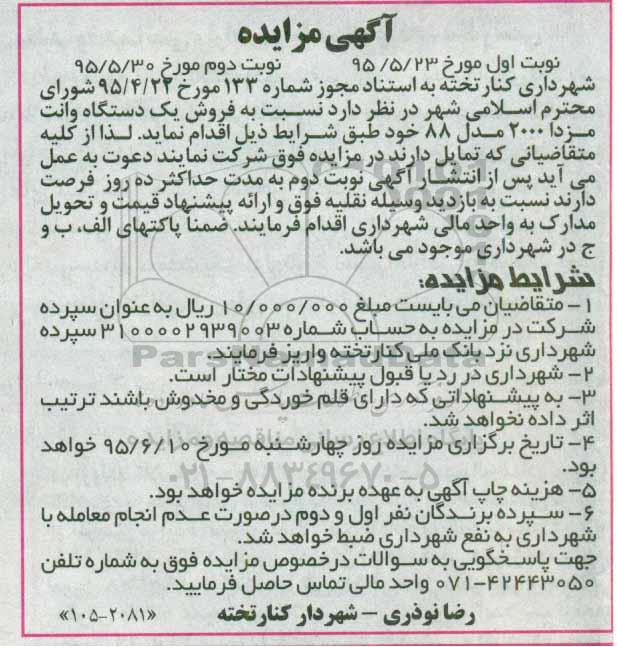 آگهی مزایده
نوبت اول مورخ ۹۵/۵/۲۳ نوبت دوم مورخ ۹۵/۵/۳۰
شهرداری کنارتخته به استناد مجوز شماره ۱۳۳ مورخ ۹۵/۴/۲۲ شورای
محترم اسلامی شهر در نظر دارد نسبت به فروش یک دستگاه وانت
مزدا ۲۰۰۰ مدل ۸۸ خود طبق شرایط ذیل اقدام نماید. لذا از کلیه
متقاضیانی که تمایل دارند در مزایده فوق شرکت نمایند دعوت به عمل
می آید پس از انتشار آگهی نوبت دوم به مدت حداکثر ده روز فرصت
دارند نسبت به بازدید وسیله نقلیه فوق و ارائه پیشنهاد قیمت و تحویل
مدارک به واحد مالی شهرداری اقدام فرمایند. ضمنا پاکتهای الف، ب و
ج در شهرداری موجود می باشد.
شرایط مزایده:
۱- متقاضیان می بایست مبلغ ۱۰/۰۰۰/۰۰۰ ریال به عنوان سپرده
شرکت در مزایده به حساب شماره ۳۱۰۰۰۰۲۹۳۹۰۰۳ سپرده
شهرداری نزد بانک ملی کنارتخته واریز فرمایند.
۲- شهرداری در رد یا قبول پیشنهادات مختار است.
۳- به پیشنهاداتی که دارای قلم خوردگی و مخدوش باشند ترتیب
اثر داده نخواهد شد.
۴- تاریخ برگزاری مزایده روز چهارشنبه مورخ ۹۵/۶/۱۰ خواهد
بود.
۵- هزینه چاپ آگهی به عهده برنده مزایده خواهد بود.
۶- سپرده برندگان نفر اول و دوم درصورت عدم انجام معامله با
شهرداری به نفع شهرداری ضبط خواهد شد.
جهت پاسخگویی به سوالات درخصوص مزایده فوق به شماره تلفن
۰۷۱-۴۲۴۴۳۰۵۰ واحد مالی تماس حاصل فرمایید.
رضا نوذری – شهردار کنارتخته «۱۰۵-۲۰۸۱»
ParsNamadData
۰۲۱-۸۸۳۴۹۶۷۰-۵